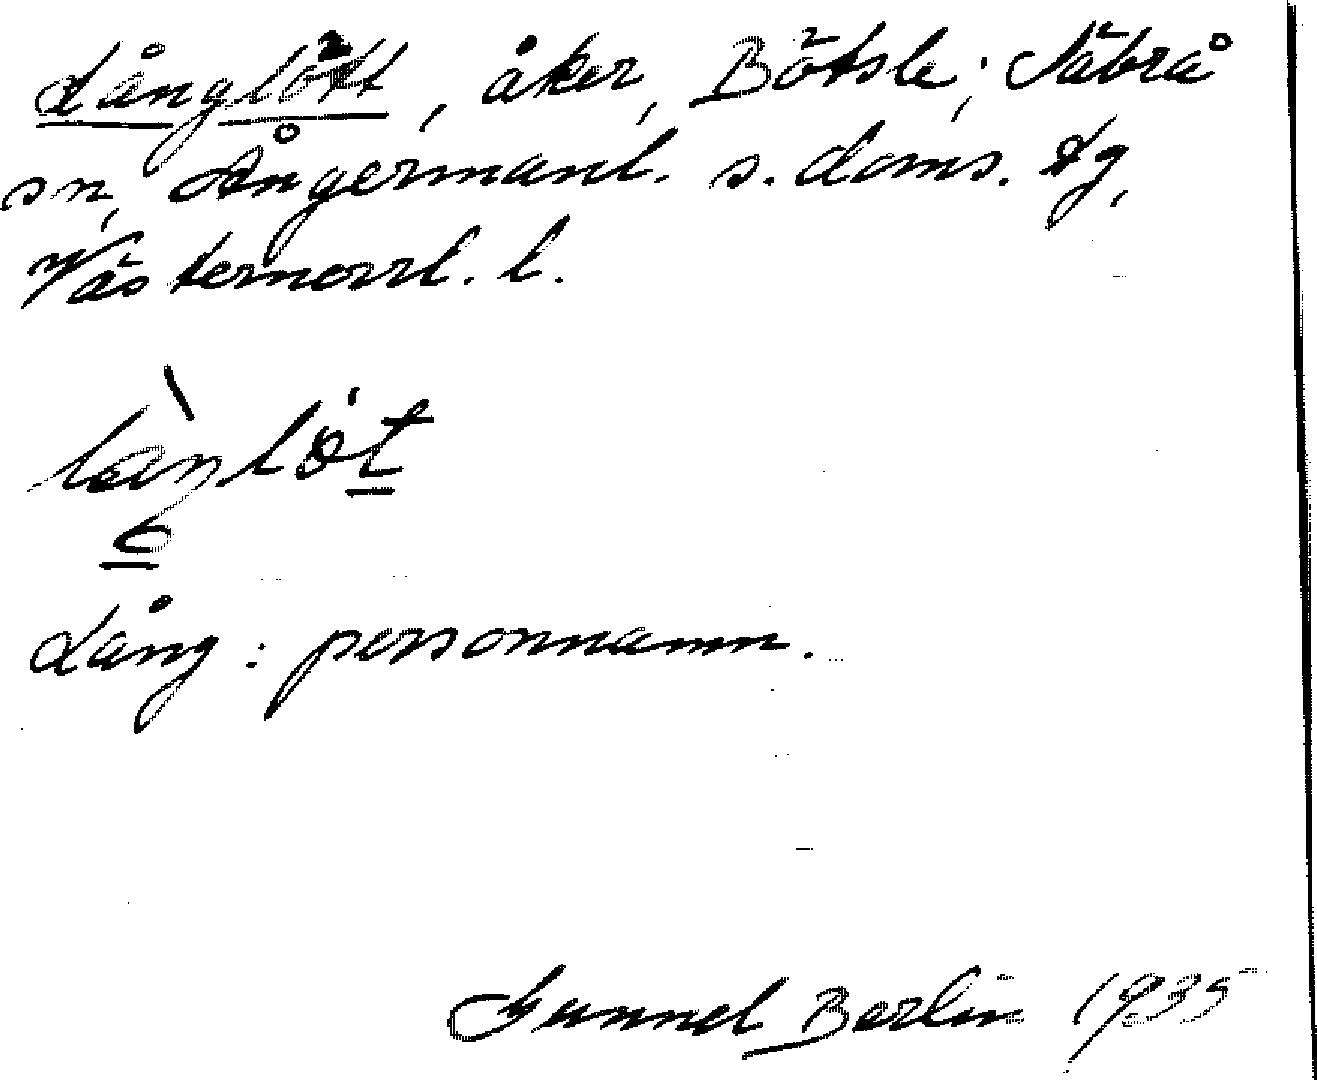 Långlött, åker, Bötsle, Säbrå
sn, Ångermanl. s. doms. tg,
Västernorrl. l.
Lång: personnamn.
Gunnel Berlin 1935